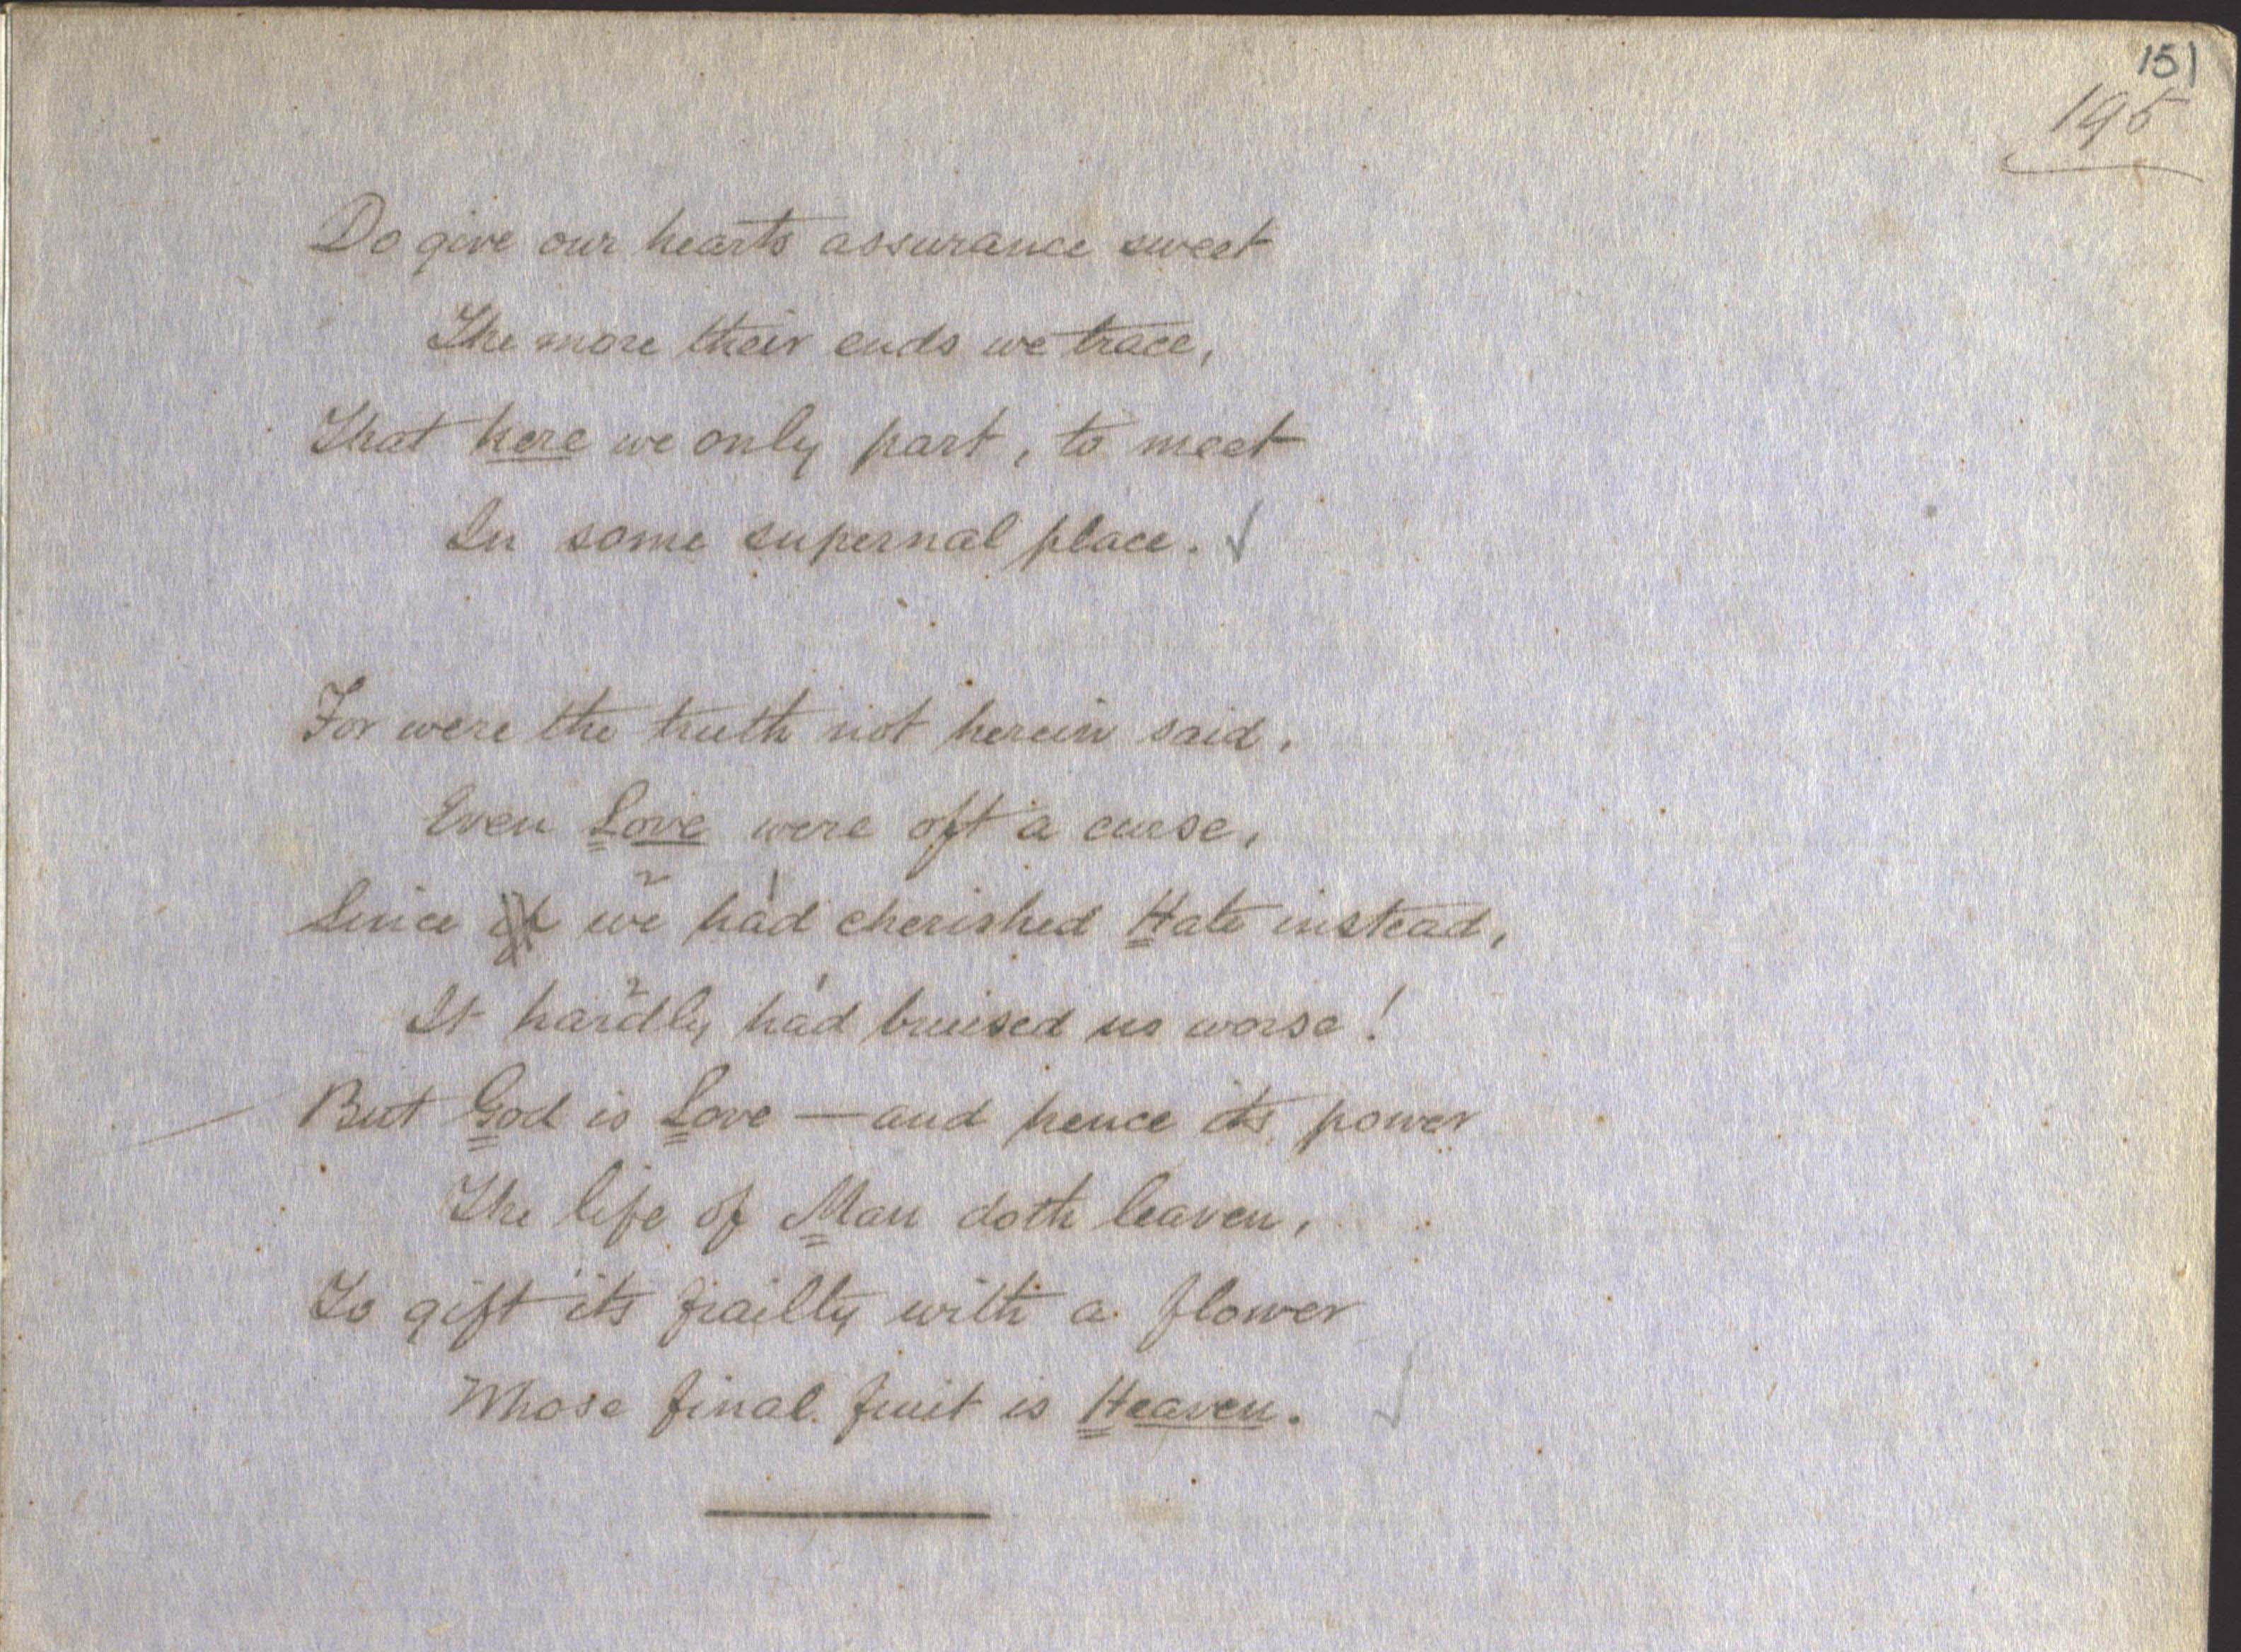 151
195
Do give our hearts assurance sweet
The more their ends we trace,
That here we only part, to meet
In some supernal place. ✓
For were the truth not herein said,
Even Love were oft a curse,
2 1
Since if we had cherished Hate instead,
2 1
It hardly had bruised us worse!
But God is Love — and hence its power
The life of Man doth leaven,
To gift its frailty with a flower
Whose final fruit is Heaven. ✓